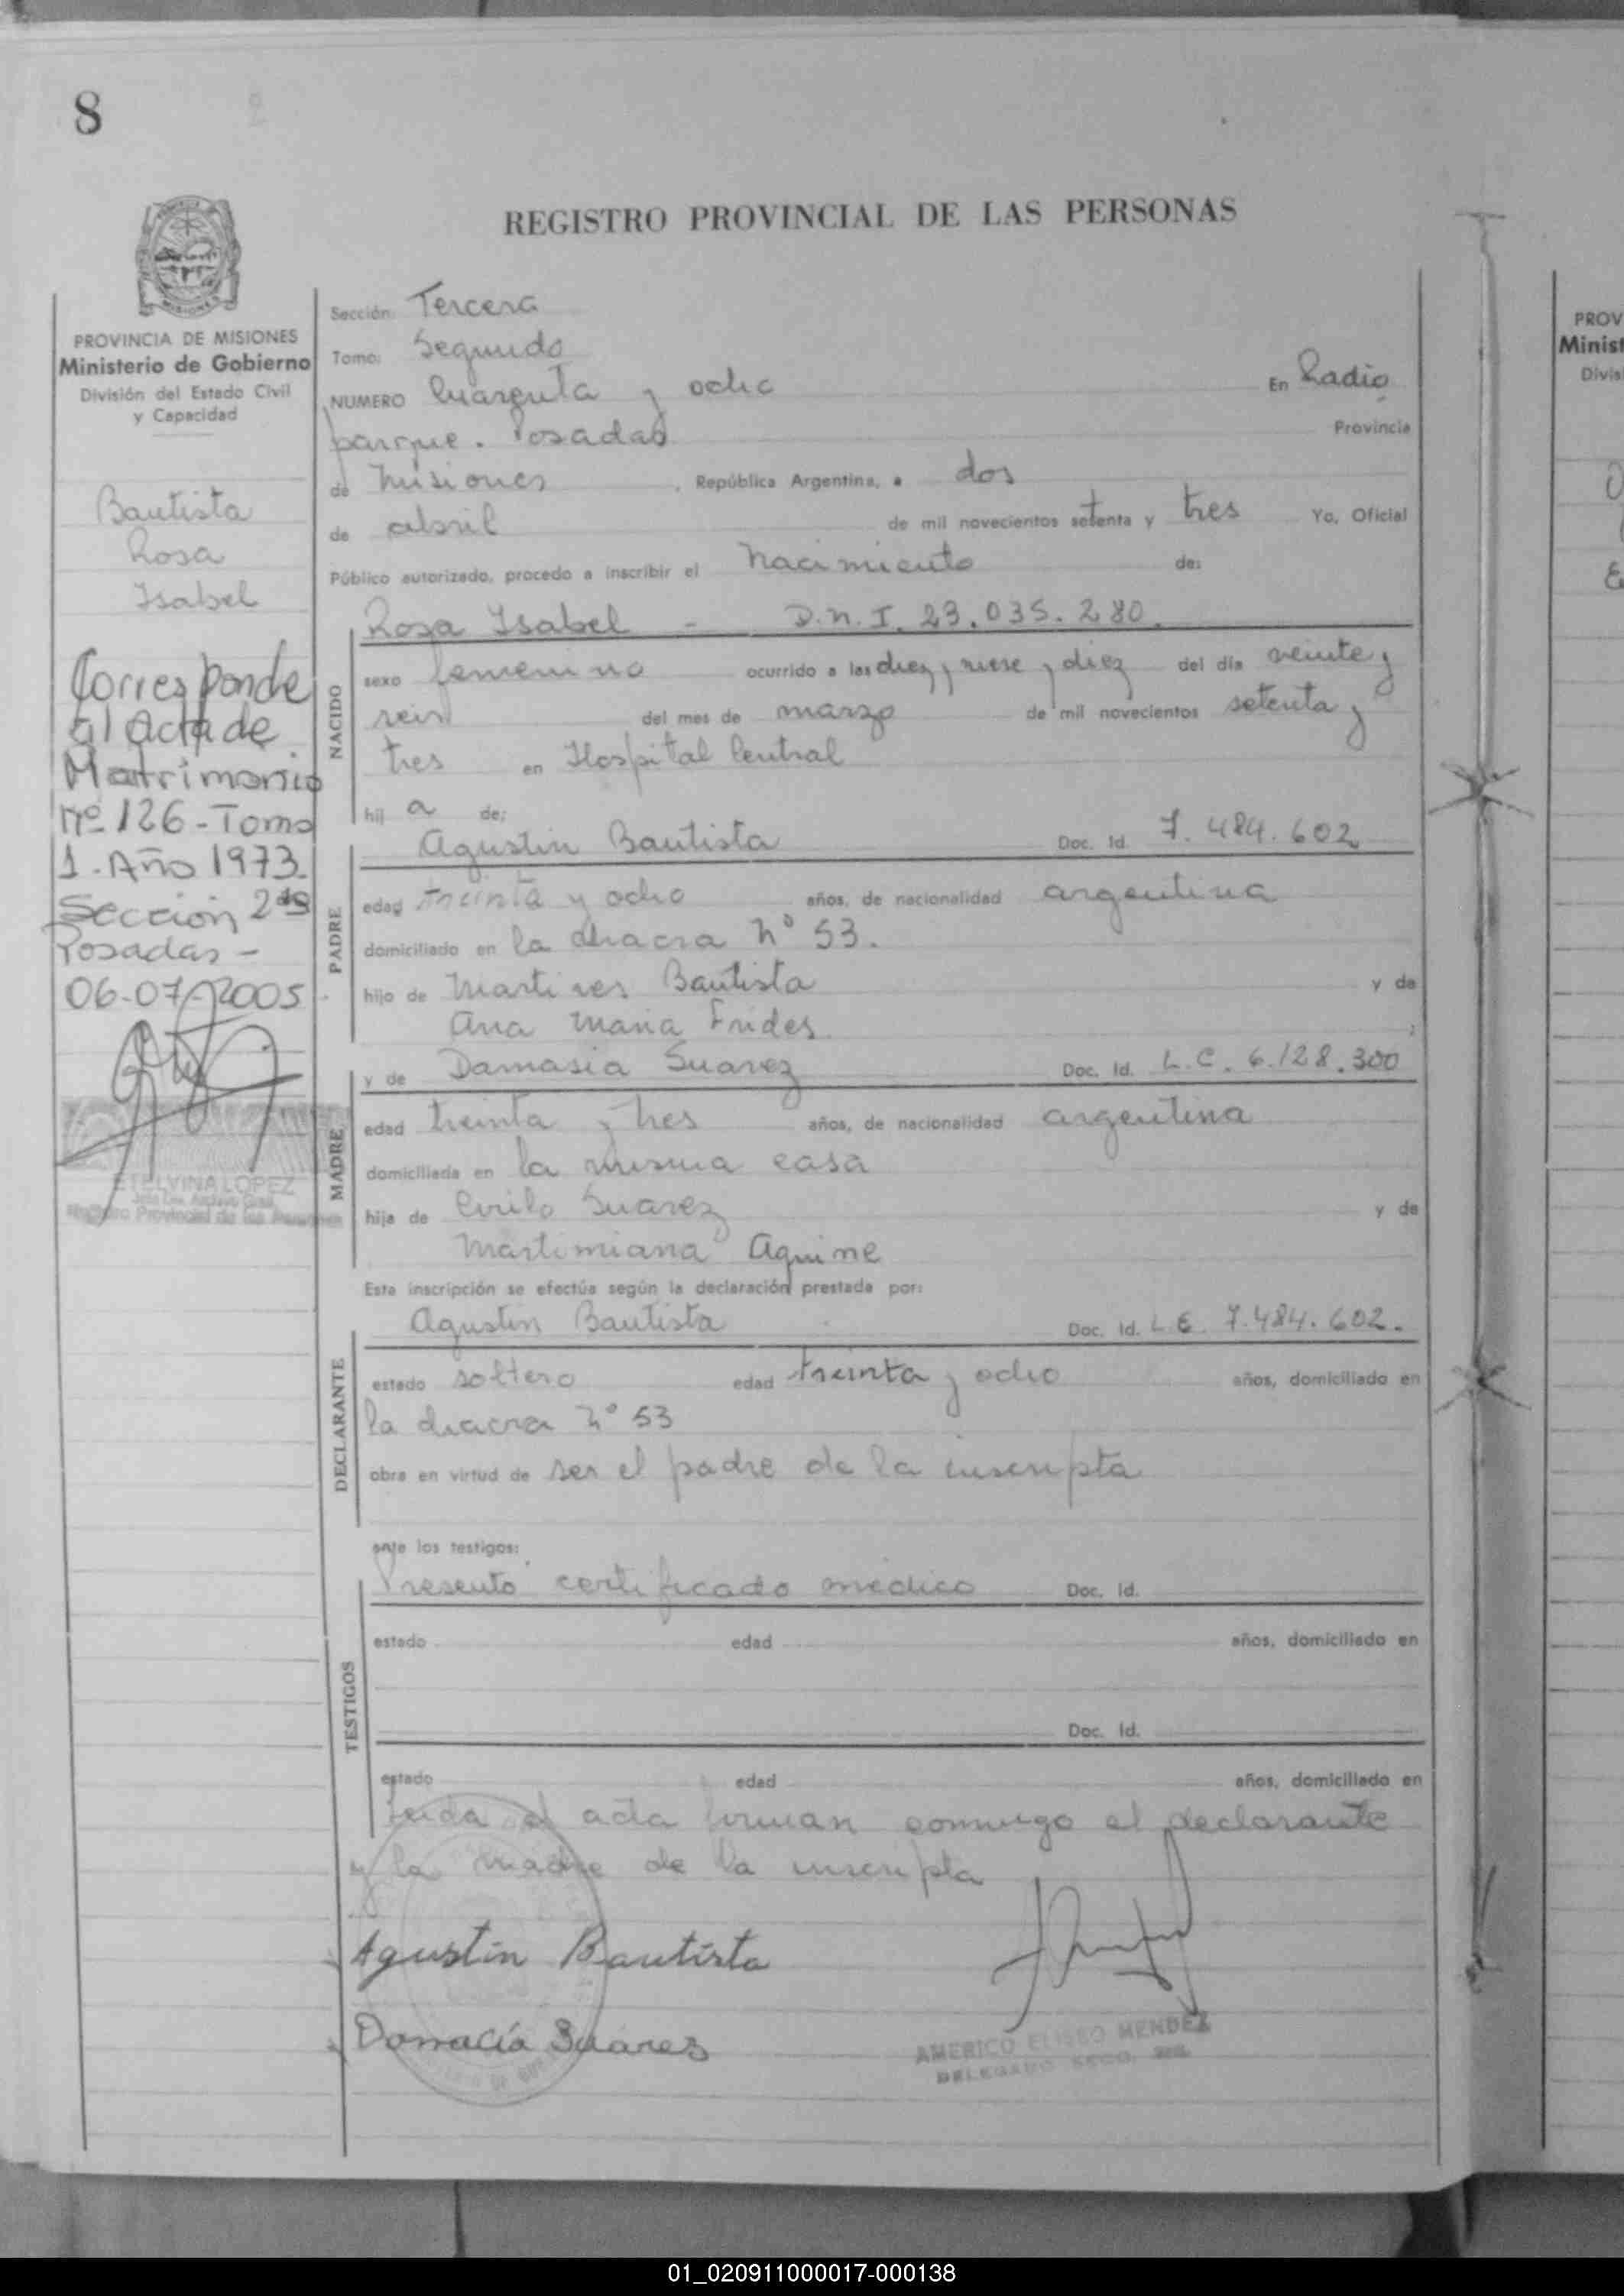 8
REGISTRO PROVINCIAL DE LAS PERSONAS
MISIONES
PROVINCIA DE MISIONES
Ministerio de Gobierno
División del Estado Civil
y Capacidad
Bautista
Rosa
Isabel
Corresponde
al acta de
Matrimonio
nº 126 - Tomo
1 - Año 1973.
Sección 2da
Posadas -
06-07-2005
ETELVINA LOPEZ
Registro Provincial de las Personas
Sección: Tercera
Tomo: Segundo
NUMERO Cuarenta y ocho En Radio
parque. Posadas Provincia
de Misiones, República Argentina, a dos
de abril de mil novecientos setenta y tres Yo, Oficial
Público autorizado, procedo a inscribir el nacimiento de:
Rosa Isabel - D.N.I. 23.035.280.
NACIDO
sexo femenino ocurrido a las diez y nueve y diez del día veinte y
seis del mes de marzo de mil novecientos setenta y
tres en Hospital Central
hij a de:
Agustin Bautista Doc. Id. 7.484.602
PADRE
edad treinta y ocho años, de nacionalidad argentina
domiciliado en la chacra nº 53.
hijo de Martires Bautista y de
Ana Maria Frides;
y de Damasia Suarez Doc. Id. L.C. 6.128.300
MADRE
edad treinta y tres años, de nacionalidad argentina
domiciliada en la misma casa
hija de Cirilo Suarez y de
Martimiana Aquine
Esta inscripción se efectúa según la declaración prestada por:
Agustin Bautista Doc. Id. L.E. 7.484.602.
DECLARANTE
estado soltero edad treinta y ocho años, domiciliado en
la chacra nº 53
obra en virtud de ser el padre de la inscripta
ante los testigos:
Presento certificado medico Doc. Id.
TESTIGOS
estado edad años, domiciliado en
Doc. Id.
estado edad años, domiciliado en
Leida el acta firman conmigo el declarante
y la madre de la inscripta
Agustin Bautista
Damacía Suares
AMERICO ELISEO MENDEZ
DELEGADO SECC.
PROV
Minist
Divis
01_020911000017-000138